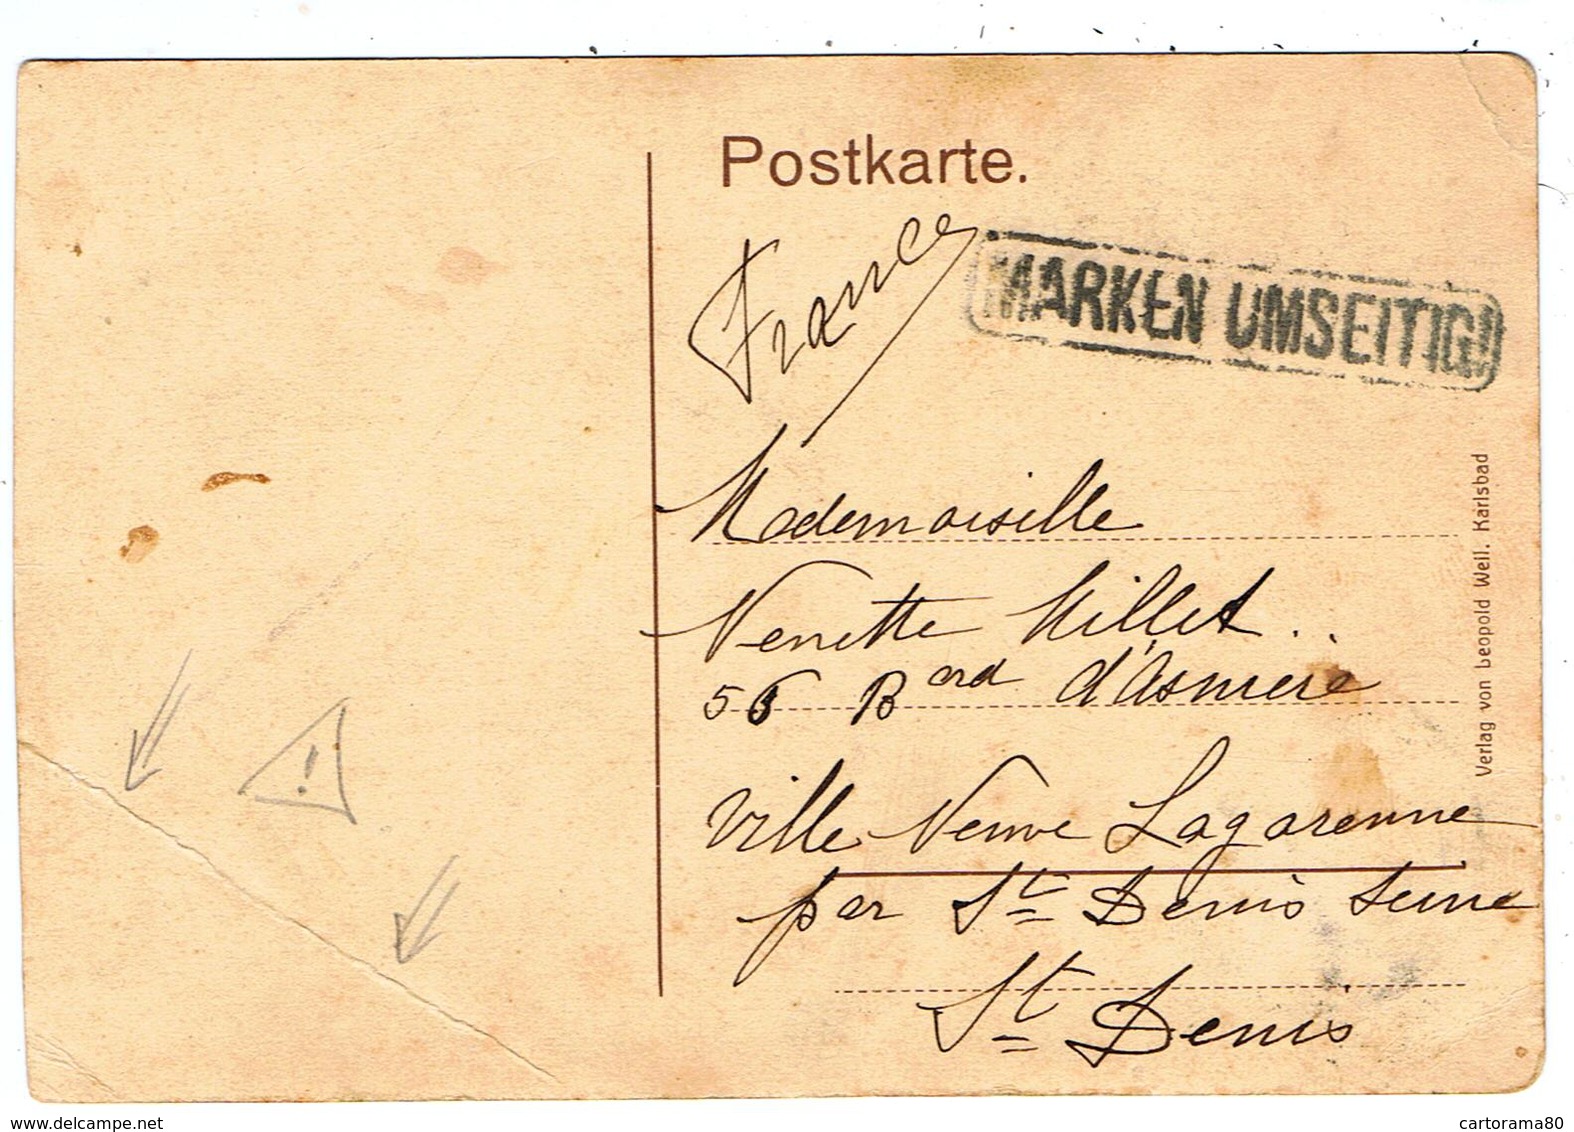 Postkarte.
France
MARKEN UMSEITIG!
Mademoiselle
Nenette Millet..
56 Bard d'Asniere
Ville Neuve Lagarenne
par St Denis Seine
St Denis
Verlag von Leopold Weil. Karlsbad
!
delcampe.net
cartorama80